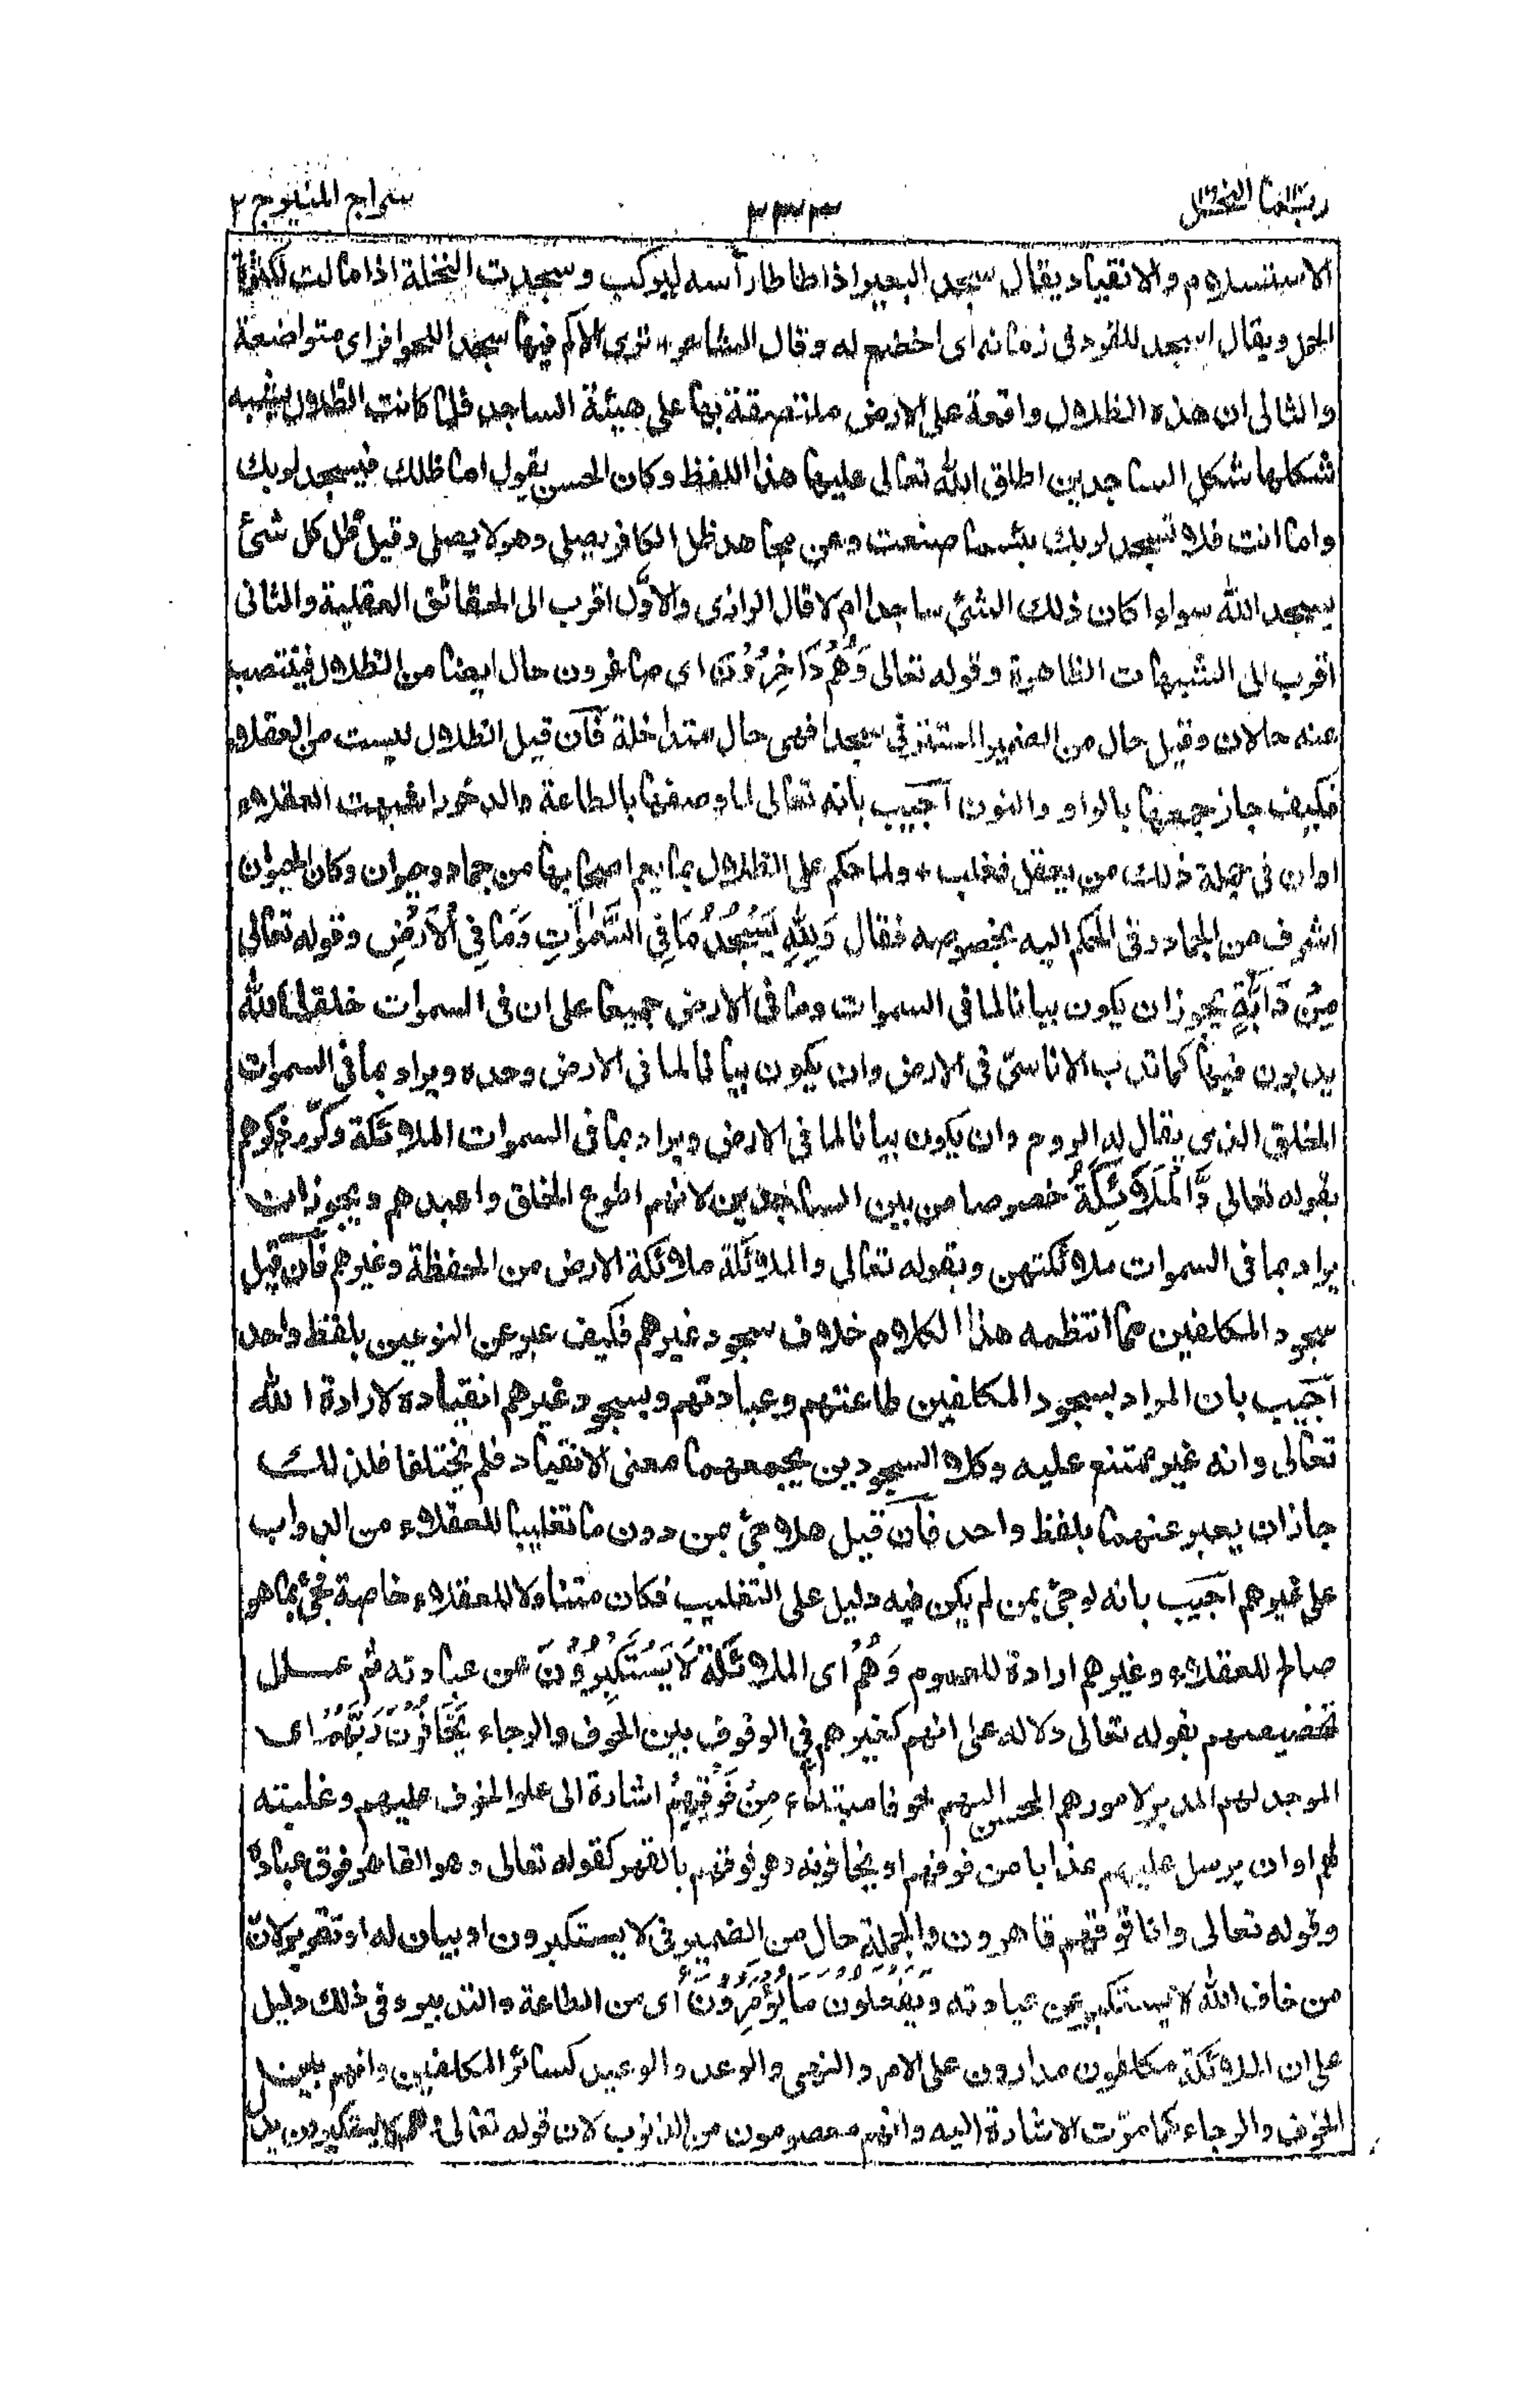 ربما النحل ٢٣٣ سراج المنير ج ٢
الاستسلام والانقياد يقال سجد البعير اذا طاطا رأسه ليركب وسجدت النخلة اذا مالت لكثرة
الحمل ويقال اسجد للقرد فى زمانه اى اخضع له وقال الشاعر ترى الاكم فيها سجدا للحوافر اى متواضعة
والثانى ان هذه الظلال واقعة على الارض ملتصقة بها على هيئة الساجد فلما كانت الظلال يشبه
شكلها شكل الساجدين اطلق الله تعالى عليها هذا اللفظ وكان الحسن يقول اما ظلك فيسجد لربك
واما انت فلا تسجد لربك بئسما صنعت وعن مجاهد ظل الكافر يصلى وهو لا يصلى وقيل ظل كل شئ
يسجد لله سواء كان ذلك الشئ ساجدا ام لا قال الرازى والاوّل اقرب الى الحقائق العقلية والثانى
اقرب الى الشبهات الظاهرة وقوله تعالى وَهُمْ دَاخِرُوْنَ اى صاغرون حال ايضا من الظلال فينتصب
عنه حالان وقيل حال من الضمير المستتر فى سجدا فهى حال متداخلة فآن قيل الظلال ليست من العقلاء
فكيف جاز جمعها بالواو والنون آجيب بانه تعالى لما وصفها بالطاعة والدخور اشبهت العقلاء
او ان فى جملة ذلك من يعقل فغلب + ولما حكم على الظلال بما يعم اصحابها من جماد وحيوان وكان الحيوان
اشرف من الجماد رقى الحكم اليه بخصوصه فقال وَلِلّٰهِ يَسْجُدُ مَا فِى السَّمٰوٰتِ وَمَا فِى الْاَرْضِ وقوله تعالى
مِنْ دَآبَّةٍ يجوز ان يكون بيانا لما فى السموات وما فى الارض جميعا على ان فى السموات خلقا لله
يدبون فيها كما تدب الاناسىّ فى الارض وان يكون بيانا لما فى الارض وحده ويراد بما فى السموات
الخلق الذى يقال له الروح وان يكون بيانا لما فى الارض ويراد بما فى السموات الملائكة وكرّر ذكرهم
بقوله تعالى وَّالْمَلٰٓئِكَةُ خصوصا من بين الساجدين لانهم اطوع الخلق واعبدهم ويجوز ان
يراد بما فى السموات ملائكتهن وبقوله تعالى والملائكة ملائكة الارض من الحفظة وغيرهم فآن قيل
سجود المكلفين مما انتظمه هذا الكلام خلاف سجود غيرهم فكيف عبر عن النوعين بلفظ واحد
آجيب بان المراد بسجود المكلفين طاعتهم وعبادتهم وبسجود غيرهم انقياده لارادة الله
تعالى وانه غير ممتنع عليه وكلا السجودين يجمعهما معنى الانقياد فلم يختلفا فلذلك
جاز ان يعبر عنهما بلفظ واحد فآن قيل هلا جئ بمن دون ما تغليبا للعقلاء من الدواب
على غيرهم اجيب بانه لو جئ بمن لم يكن فيه دليل على التغليب فكان متناولا للعقلاء خاصة فجئ بما هو
صالح للعقلاء وغيرهم ارادة للعموم وَهُمْ اى الملائكة لَا يَسْتَكْبِرُوْنَ عن عبادته ثم علل
تخصيصهم بقوله تعالى دلاله على انهم كغيرهم فى الوقوف بين الخوف والرجاء يَخَافُوْنَ رَبَّهُمْ اى
الموجد لهم المدبر لامورهم المحسن اليهم خوفا مبتدأء مِنْ فَوْقِهِمْ اشارة الى علو الخوف عليهم وغلبته
لهم او ان يرسل عليهم عذابا من فوقهم او يخافونه وهو فوقهم بالقهر كقوله تعالى وهو القاهر فوق عباده
وقوله تعالى وانا فوقهم قاهرون والجملة حال من الضمير فى لا يستكبرون او بيان له او تقرير لانّ
من خاف الله لا يستكبر عن عبادته وَيَفْعَلُوْنَ مَا يُؤْمَرُوْنَ اى من الطاعة والتدبير وفى ذلك دليل
على ان الملائكة مكلفون مدارون على الامر والنهى والوعد والوعيد كسائر المكلفين وانهم بين
الخوف والرجاء كما مرّت الاشارة اليه وانهم معصومون من الذنوب لان قوله تعالى وهم لا يستكبرون يدل